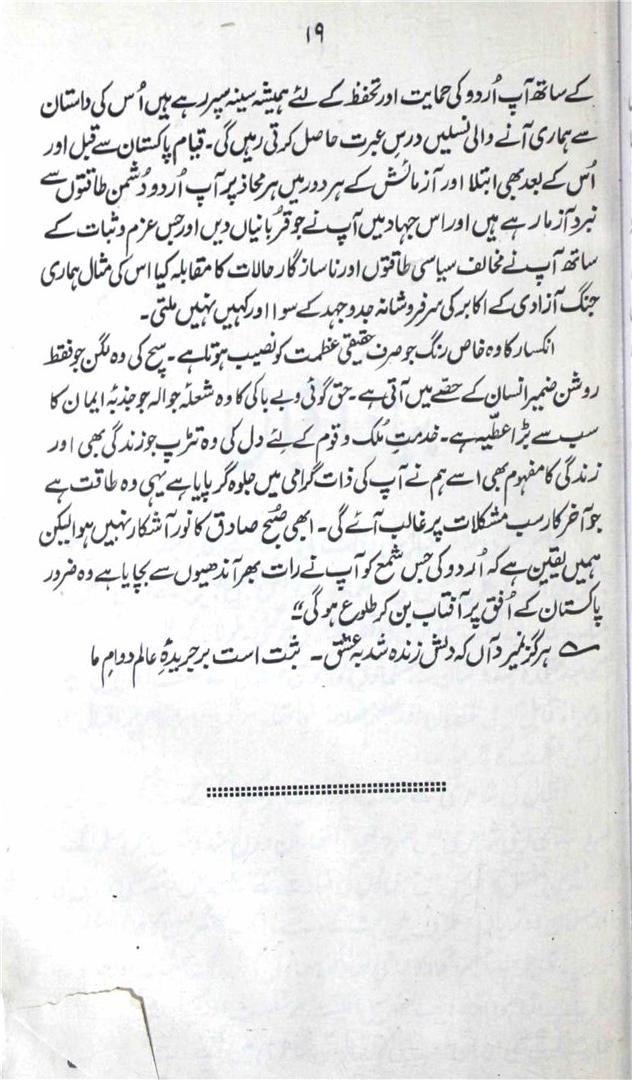 ۱۹
کے ساتھ آپ اُردو کی حمایت اور تحفظ کے لئے ہمیشہ سینہ سپر رہے ہیں اُس کی داستان
سے ہماری آنے والی نسلیں درسِ عبرت حاصل کرتی رہیں گی۔ قیام پاکستان سے قبل اور
اُس کے بعد بھی ابتلا اور آزمائش کے ہر دور میں ہر محاذ پر آپ اُردو دُشمن طاقتوں سے
نبرد آزما رہے ہیں اور اس جہاد میں آپ نے جو قُربانیاں دیں اور جس عزم و ثبات کے
ساتھ آپ نے مخالف سیاسی طاقتوں اور ناساز گار حالات کا مقابلہ کیا اس کی مثال ہماری
جنگ آزادی کے اکابر کی سرفروشانہ جدوجہد کے سوا اور کہیں نہیں ملتی۔
انکسار کا وہ خاص رنگ جو صرف حقیقی عظمت کو نصیب ہوتا ہے۔ سچ کی وہ لگن جو فقط
روشن ضمیر انسان کے حصّے میں آتی ہے۔ حق گوئی و بے باکی کا وہ شعلۂ جوالہ جو جذبۂ ایمان کا
سب سے بڑا عطیّہ ہے۔ خدمتِ مُلک و قوم کے لئے دل کی وہ تڑپ جو زندگی بھی اور
زندگی کا مفہوم بھی اسے ہم نے آپ کی ذات گرامی میں جلوہ گر پایا ہے یہی وہ طاقت ہے
جو آخر کار سب مشکلات پر غالب آئے گی۔ ابھی صُبح صادق کا نور آشکار نہیں ہوا لیکن
ہمیں یقین ہے کہ اُردو کی جس شمع کو آپ نے رات بھر آندھیوں سے بچایا ہے وہ ضرور
پاکستان کے اُفق پر آفتاب بن کر طلوع ہو گی"
؎ ہرگز نمیرد آں کہ دلش زندہ شد بہ عشق۔ ثبت است بر جریدۂ عالم دوامِ ما